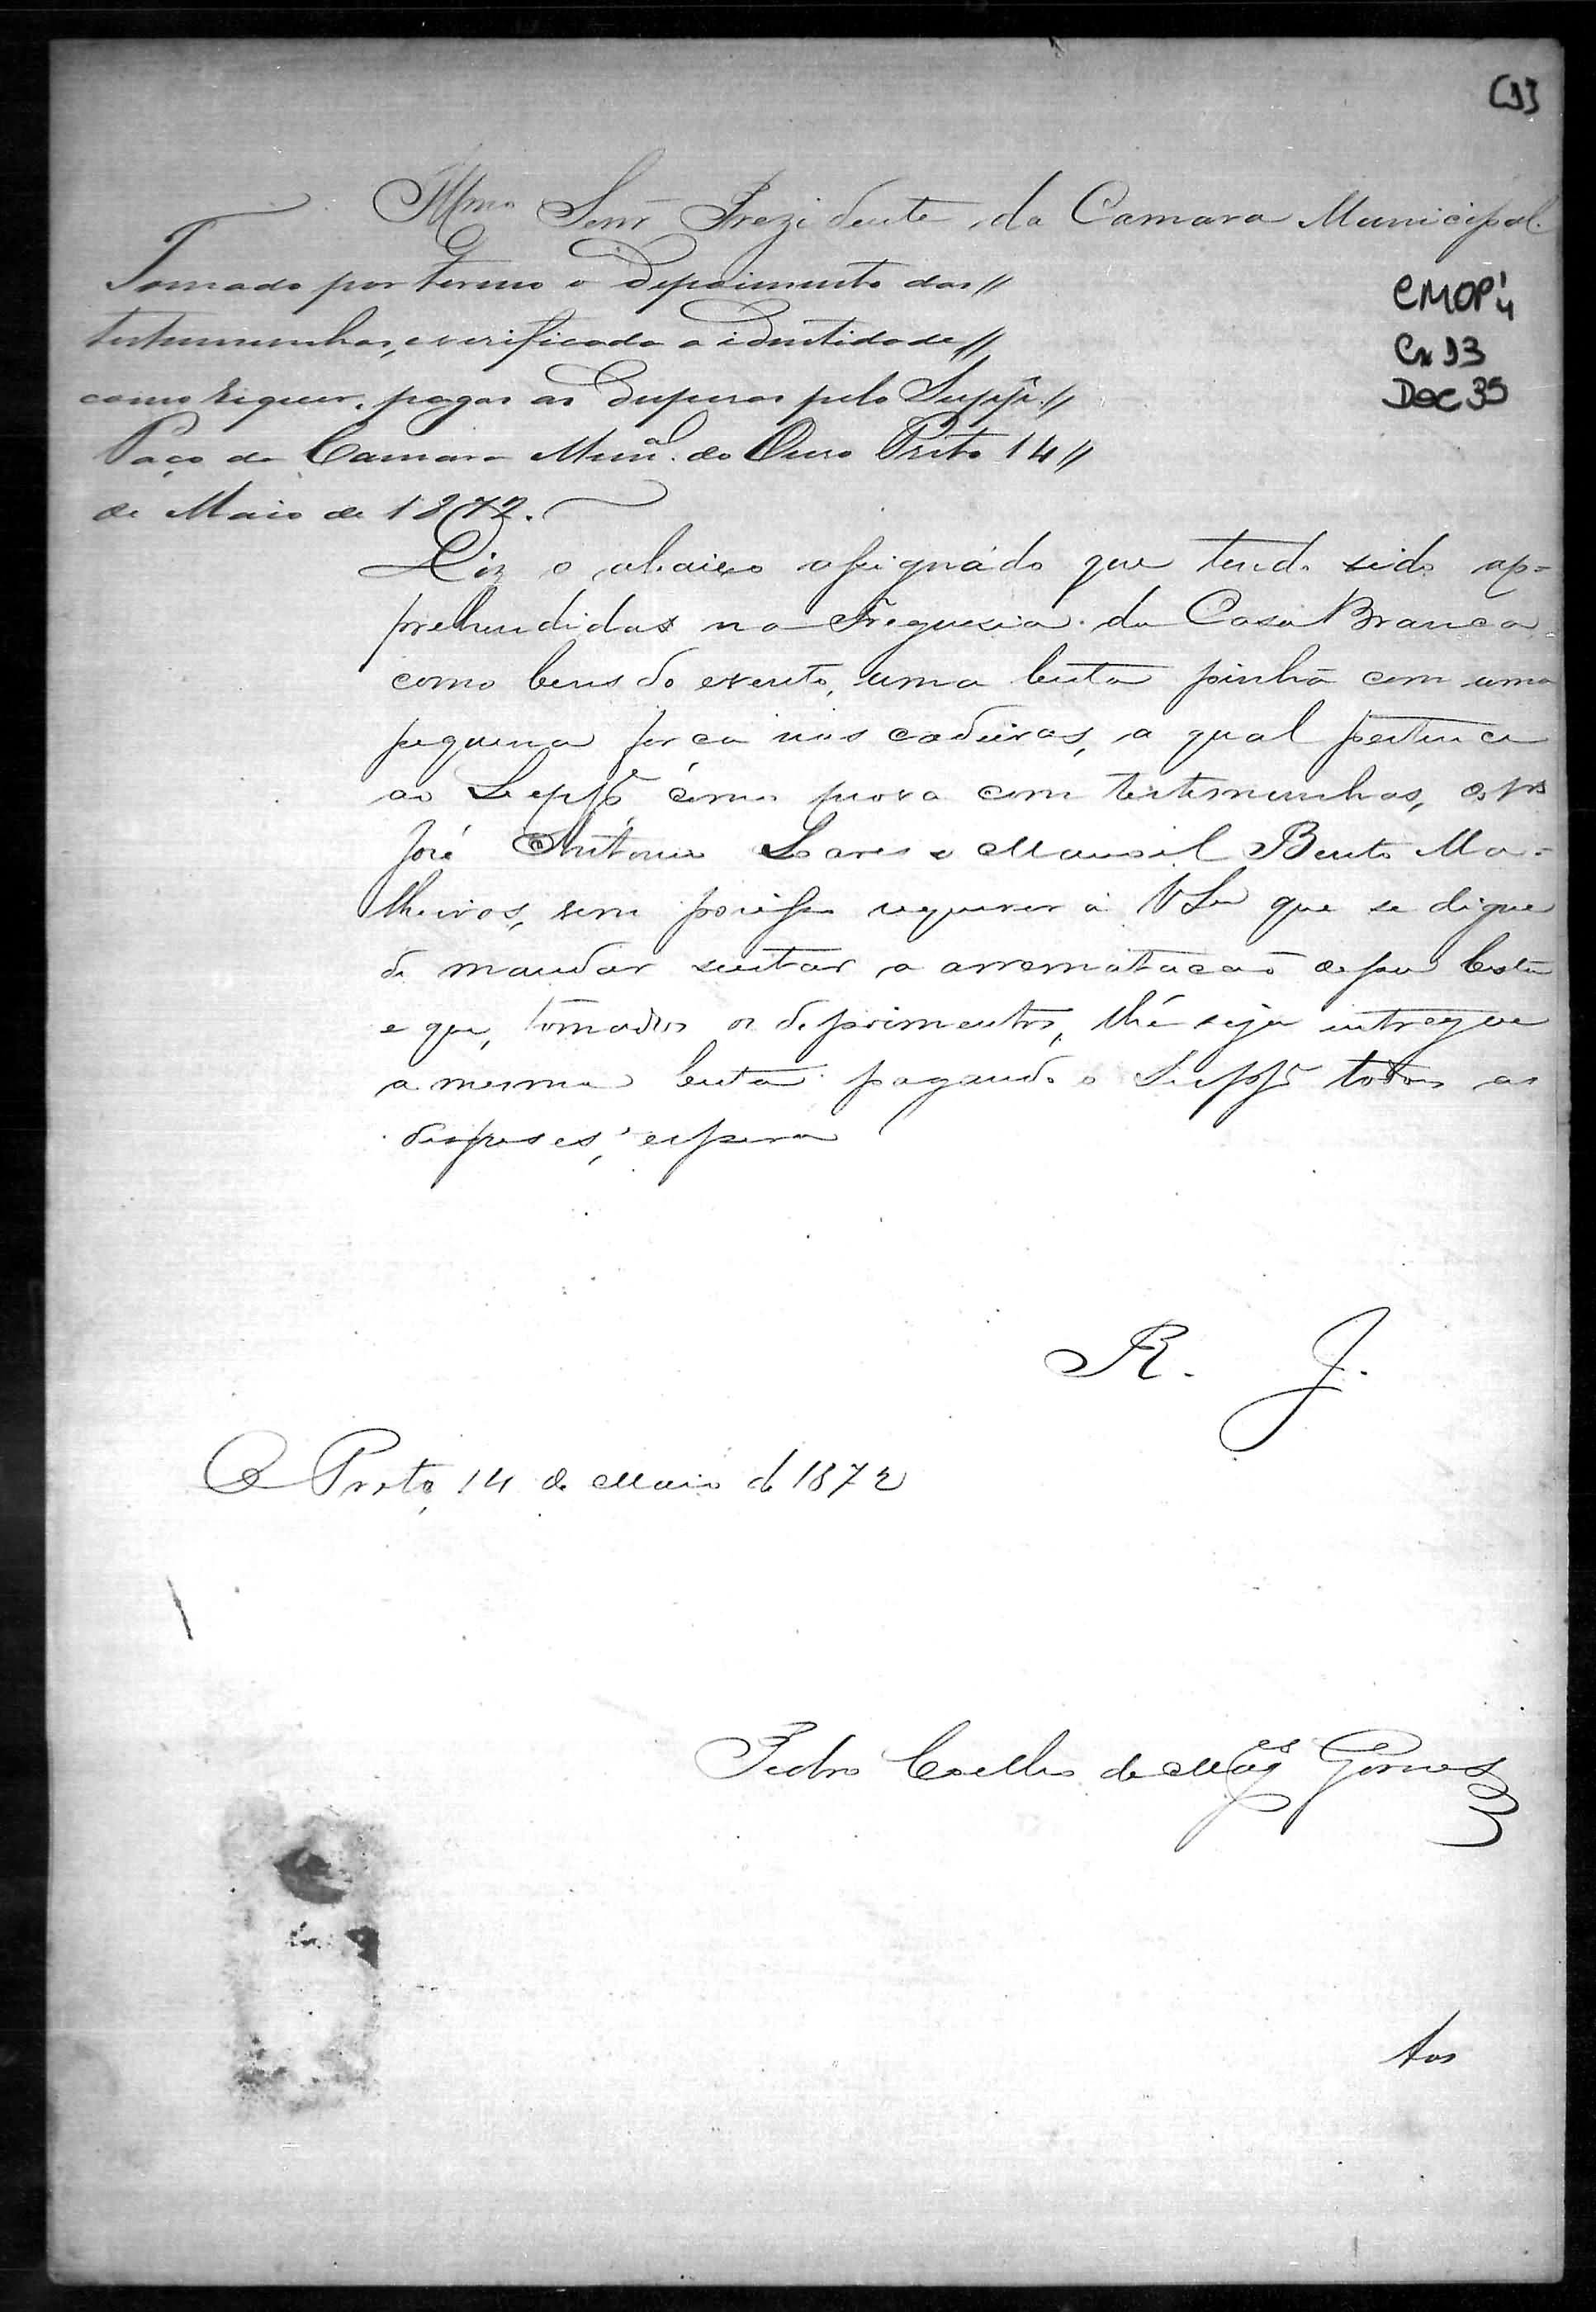 [1]
Illmo Senr Prezidente da Camara Municipal.
Tomado por termo o depoimento das //
testemunhas, e verificada a identidade //
como requer, pagas as despesas pelo Suppe. //
Paço da Camara Munal. do Ouro Preto 14 //
de Maio de 1872.
CMOP
Cx 13
Doc 35
Diz o abaixo assignado que tendo sido ap=
prehendidas na Freguesia da Casa Branca,
como bens do evento, uma besta pinhã com uma
pequena forca nas cadeiras, a qual pertence
ao Suppe, como prova com testemunhas, os
José Antonio Soares e Manoel Bento Ma=
lheiros, vem por isso requerer a VSa que se digne
de mandar sustar a arrematacaõ de sua besta
e que, tomados os depoimentos, lhe seja entregue
a mesma besta pagando o Suppe todas as
despeses, espera
R. J.
O Preto, 14 de Maio de 1872
Pedro Coelho de Mages Gomes
Aos